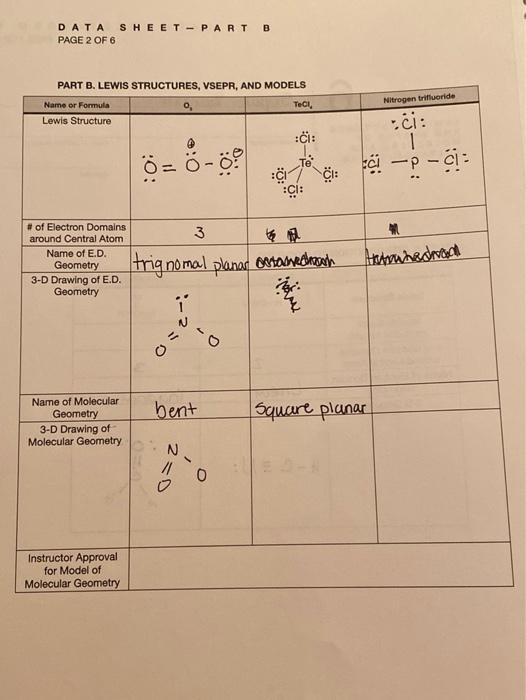 DATA SHEET – PART B
PAGE 2 OF 6
PART B. LEWIS STRUCTURES, VSEPR, AND MODELS
Name or Formula O₃ TeCl₄ Nitrogen trifluoride
Lewis Structure
:Cl:
Ö = Ö - Ö:
⊕ ⊖
:Cl:
Te
:Cl Cl:
:Cl:
:Cl - P - Cl:
# of Electron Domains around Central Atom 3
Name of E.D. Geometry trignomal planar
3-D Drawing of E.D. Geometry
N
O O
Name of Molecular Geometry bent square planar
3-D Drawing of Molecular Geometry
N
O O
Instructor Approval for Model of Molecular Geometry